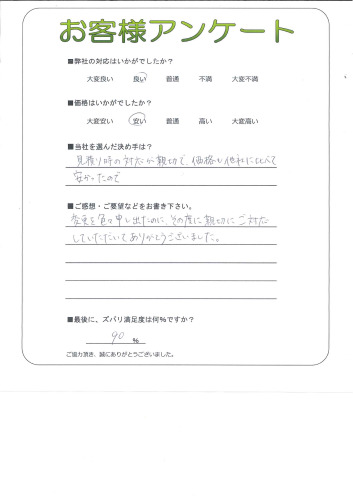 お客様アンケート
■弊社の対応はいかがでしたか?
大変良い 良い 普通 不満 大変不満
■価格はいかがでしたか?
大変安い 安い 普通 高い 大変高い
■当社を選んだ決め手は?
見積り時の対応が親切で、価格も他社に比べて
安かったので
■ご感想・ご要望などをお書き下さい。
変更を色々申し出たのに、その度に親切にご対応
していただいてありがとうございました。
■最後に、ズバリ満足度は何%ですか?
90 %
ご協力頂き、誠にありがとうございました。